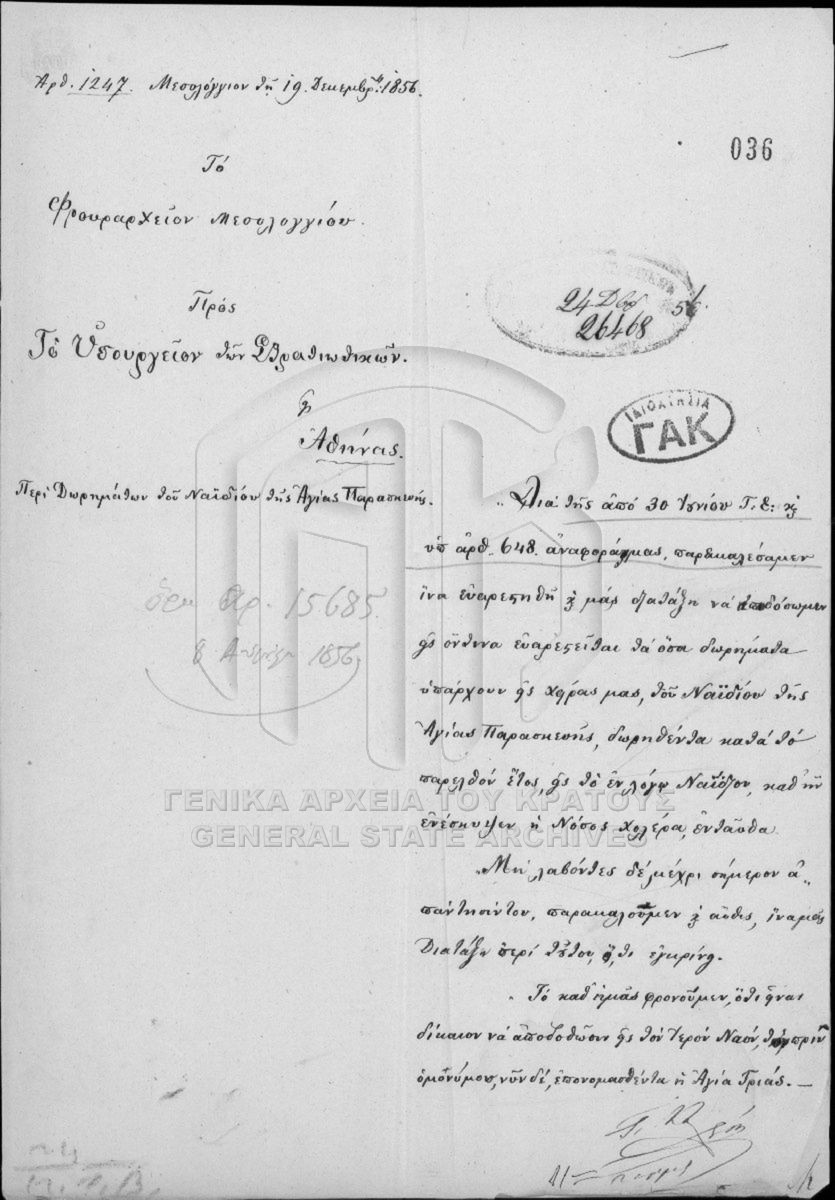 Αρθ. 1247. Μεσολόγγιον τῇ 19 Δεκεμβρ: 1856.
036
Τό
Φρουραρχεῖον Μεσολογγίου.
Πρός
Τὸ Ὑπουργεῖον τῶν Στρατιωτικῶν.
24 Δβρ 56
26468
εἰς
Ἀθήνας.
ΙΔΙΟΚΤΗΣΙΑ
ΓΑΚ
Περὶ Δωρημάτων τοῦ Ναϊδίου τῆς Ἁγίας Παρασκευῆς.
Διὰ τῆς ἀπό 30 Ἰουνίου Γ.Ε: καὶ
ὑπ ἀρθ. 648. ἀναφορᾶς μας, παρεκαλέσαμεν
ἵνα εὐαρεστηθῇ καὶ μᾶς διατάξῃ νὰ ἀποδόσωμεν
εἰς ὅντινα εὐαρεστεῖται τὰ ὅσα δωρήματα
ὑπάρχουν εἰς χεῖρας μας, τοῦ Ναϊδίου τῆς
Ἁγίας Παρασκευῆς, δωρηθέντα κατὰ τὸ
παρελθὸν ἔτος, εἰς τὸ ἐν λόγῳ Ναΐδιον, καθ ἣν
ἐνέσκυψεν ἡ Νόσος χολέρα, ἐνταῦθα.
ὅρα ἀρ. 15685
8 1856
ΓΕΝΙΚΑ ΑΡΧΕΙΑ ΤΟΥ ΚΡΑΤΟΥΣ
GENERAL STATE ARCHIVES
Μὴ λαβόντες δὲ μέχρι σήμερον ἀ-
πάντησίν του, παρακαλοῦμεν καὶ αὖθις, ἵνα μᾶς
Διατάξῃ περὶ τούτου, ὅ,τι ἐγκρίνῃ.
Τὸ καθ ἡμᾶς φρονοῦμεν, ὅτι εἶναι
δίκαιον νὰ ἀποδοθῶσιν εἰς τὸν Ἱερὸν Ναόν, πρὶν
ὁμονύμου, νῦν δὲ, ἐπονομασθέντα ἡ Ἁγία Τριάς.—